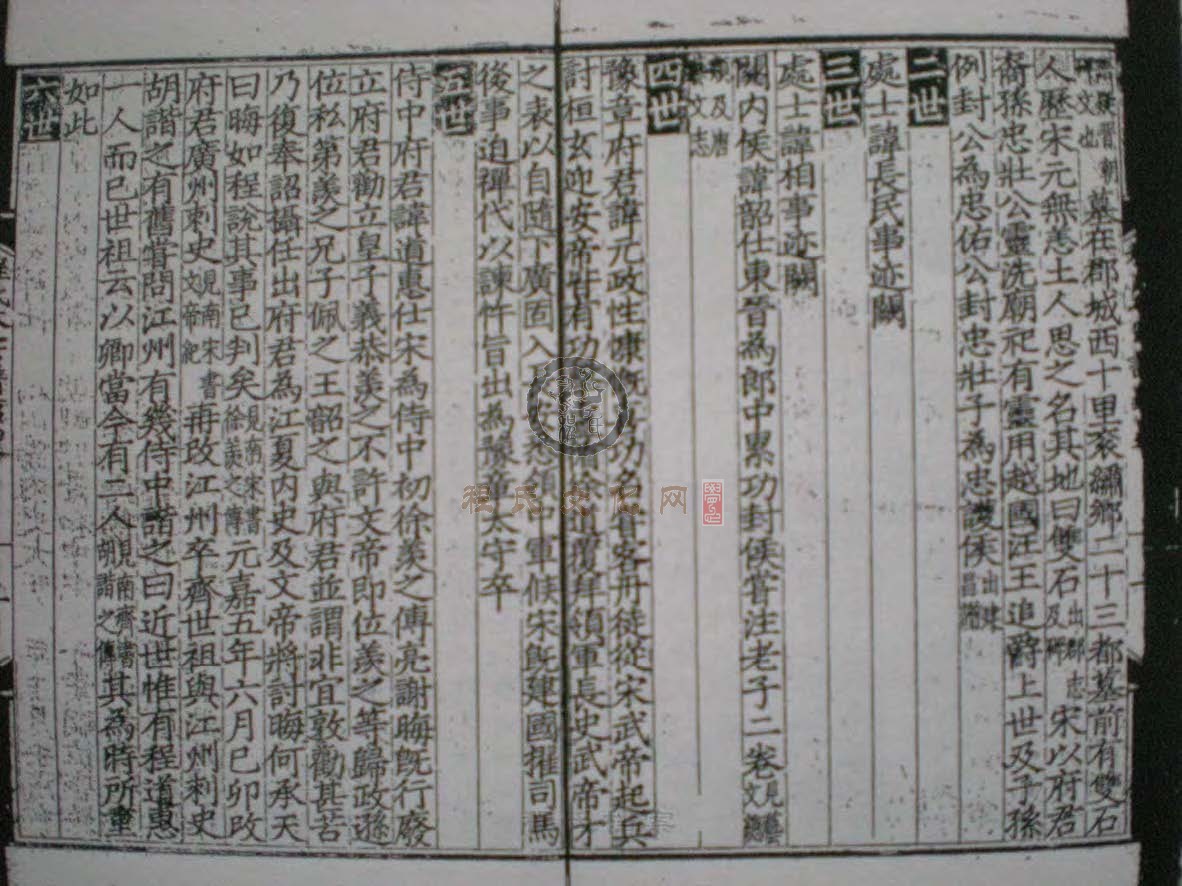 墓在郡城西十里袞繡鄉二十三都墓前有雙石
人歷宋元無恙土人思之名其地曰雙石出郡志及碑宋以府君
裔孫忠壯公靈洗廟祀有靈用越國汪王追爵上世及子孫
例封公為忠佑公封忠壯子為忠護侯
二世
處士諱長民事迹闕
三世
處士諱相事迹闕
關内侯諱韶仕東晉為郎中累功封侯嘗注老子二卷
四世
豫章府君諱元政性慷慨功名丹徒從宋武帝起兵
討桓玄迎安帝皆有功徐道覆拜領軍長史武帝才
之表以自隨下廣固入軍候宋既建國擢司馬
後事迫禪代以諫忤旨出為豫章太守卒
五世
侍中府君諱道惠仕宋為侍中初徐羨之傅亮謝晦既行廢
立府君勸立皇子義恭羨之不許文帝即位羨之等歸政遜
位私第羨之兄子佩之王韶之與府君並謂非宜敦勸甚苦
乃復奉詔攝任出府君為江夏内史及文帝將討晦何承天
曰晦如程說其事已判矣見南宋書徐羨之傳元嘉五年六月已卯改
府君廣州刺史見南宋書文帝紀再改江州卒齊世祖與江州刺史
胡諧之有舊嘗問江州有幾侍中諧之曰近世惟有程道惠
一人而已世祖云以卿當今有二人見南齊書胡諧之傳其為時所重
如此
六世
程氏文化网